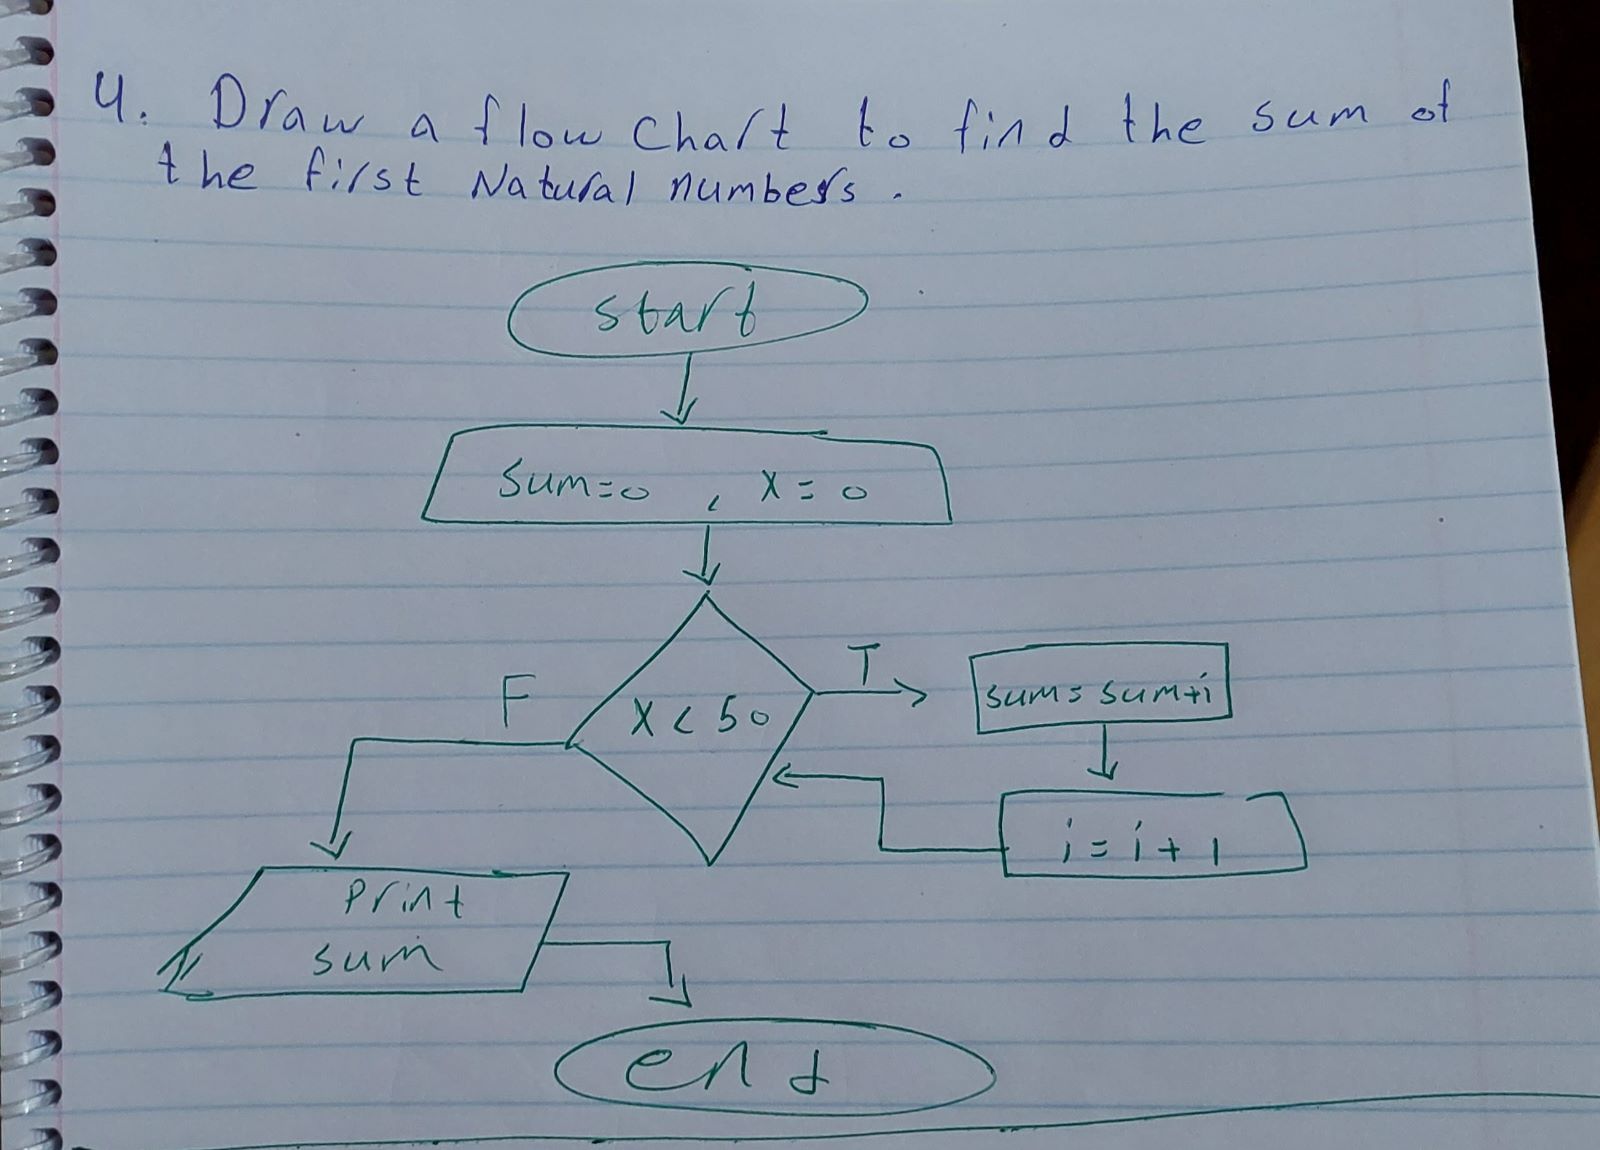 4. Draw a flow chart to find the sum of
the first Natural numbers.
start
sum=0 , x=0
x < 50
T
F
sum= sum+i
i = i + 1
print
sum
end